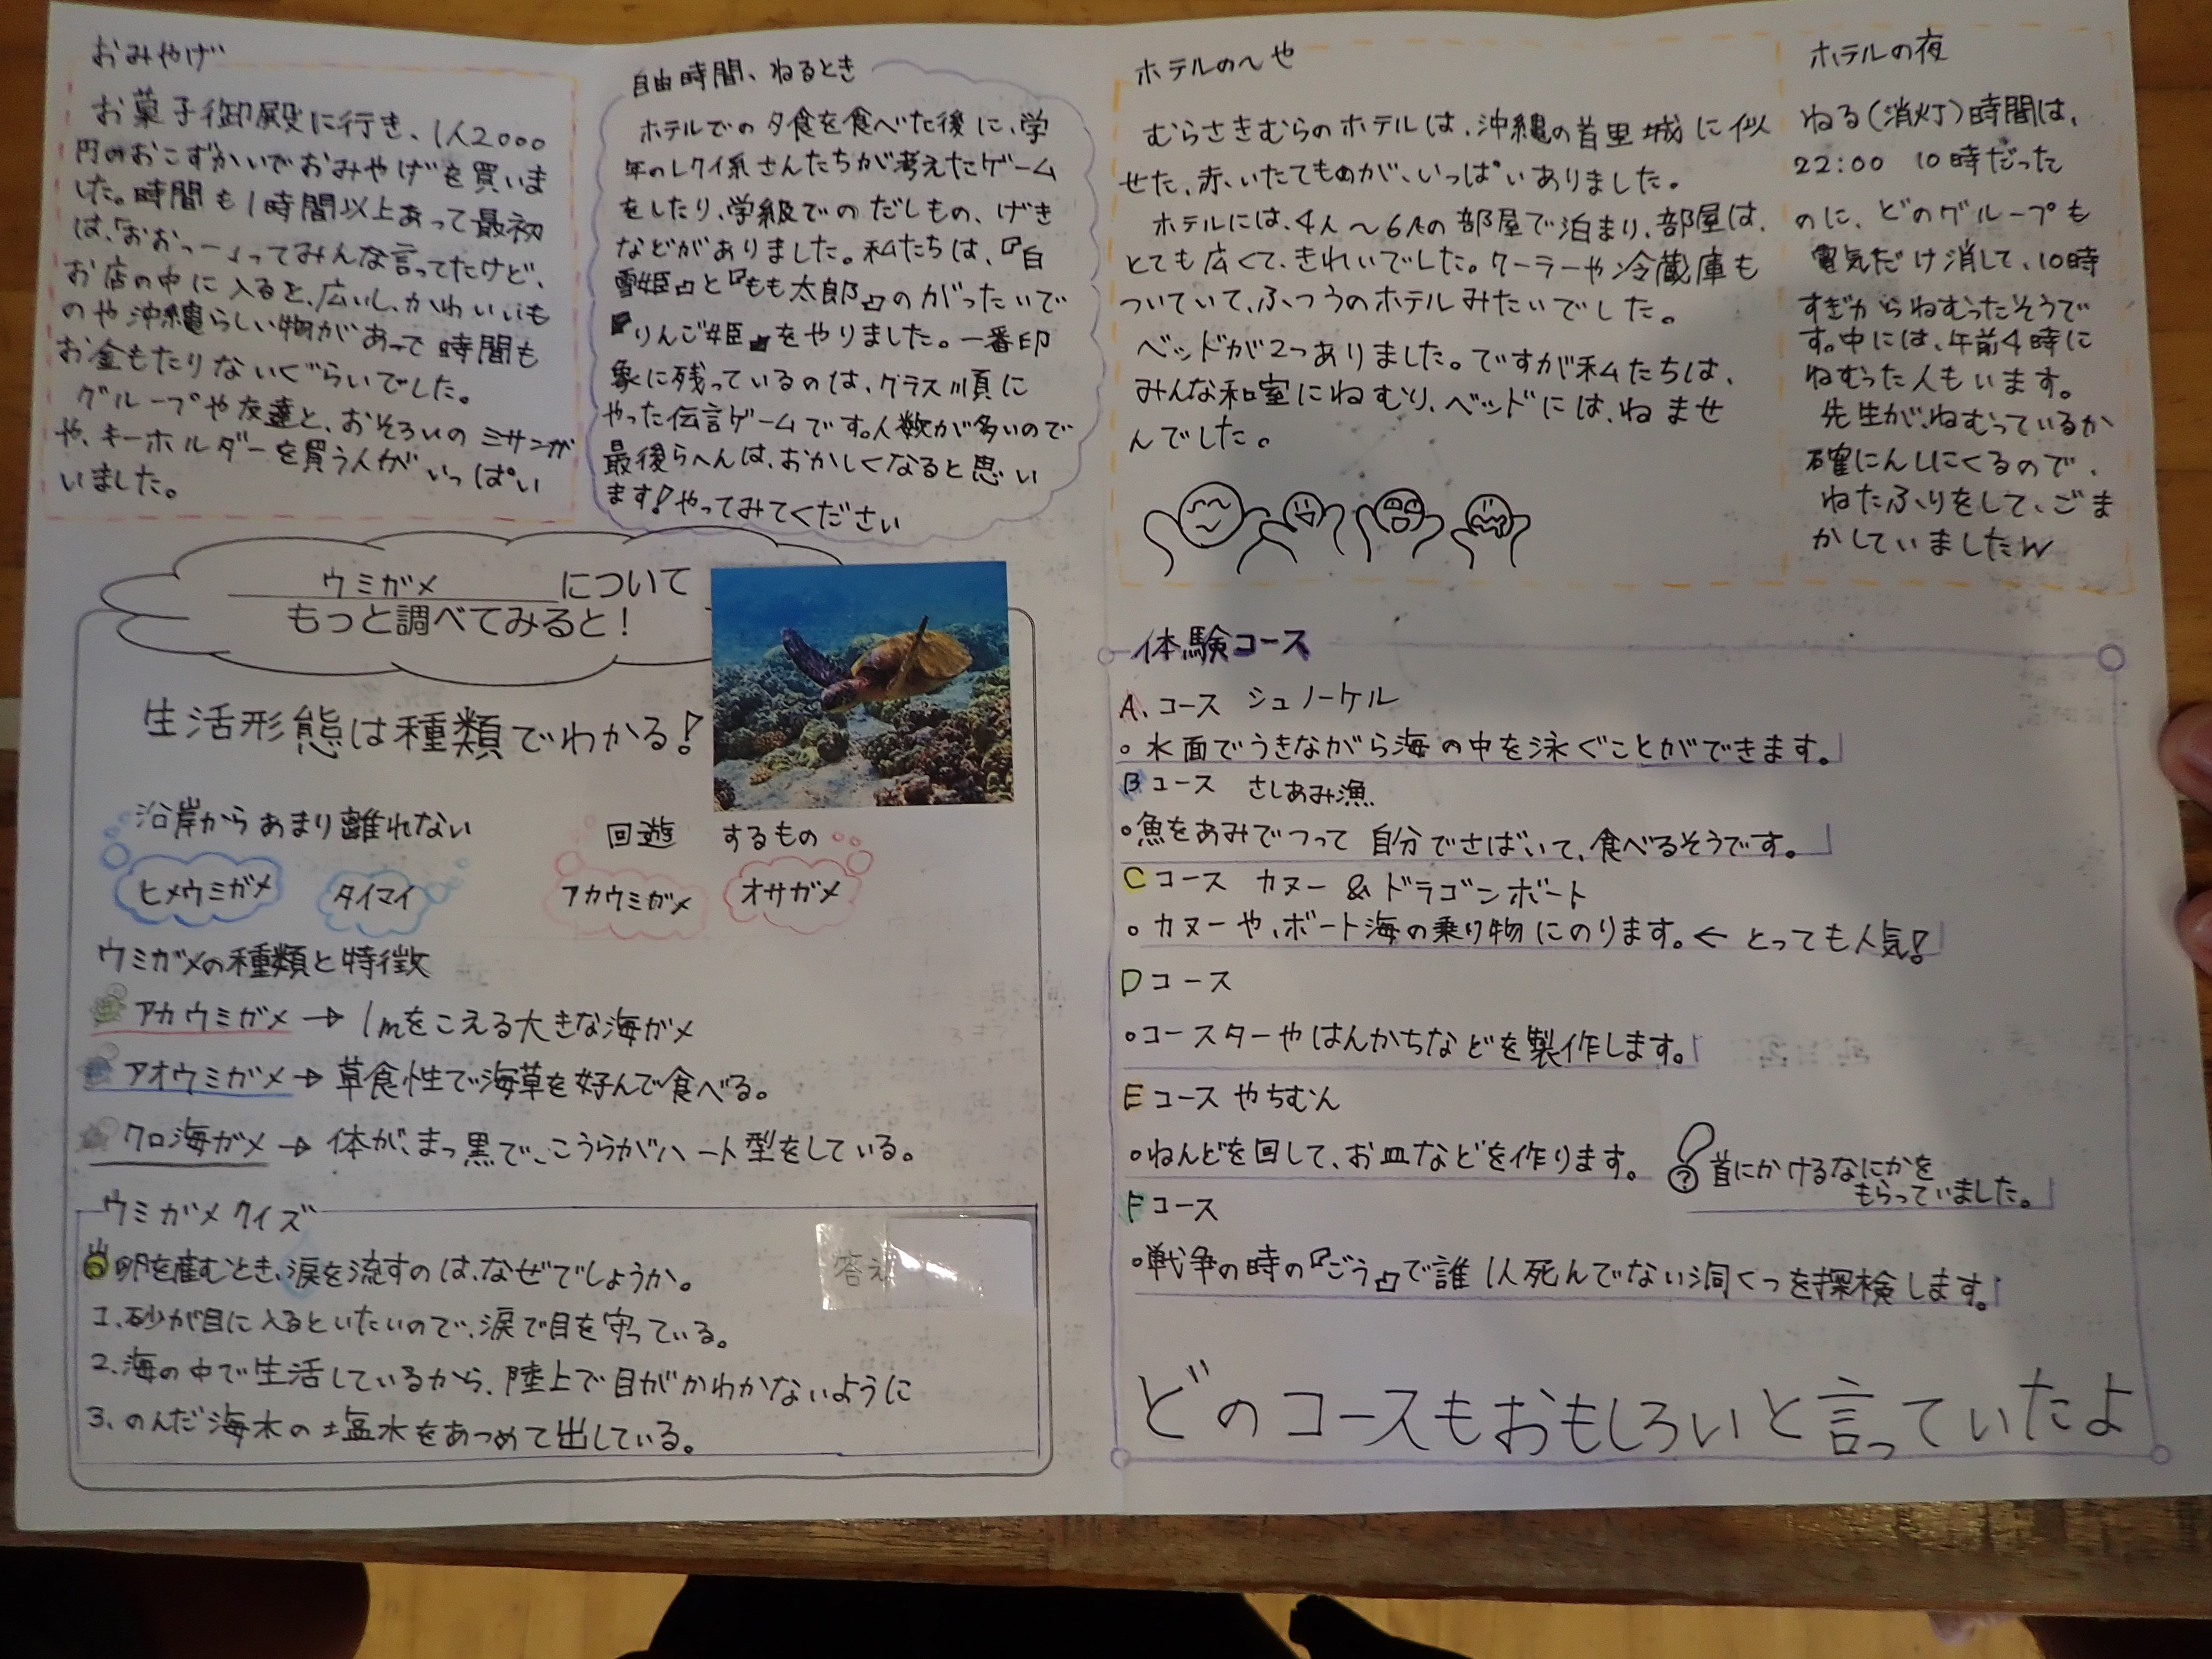 おみやげ
お菓子御殿に行き、1人2000
円のおこずかいでおみやげを買いま
した。時間も1時間以上あって最初
は、「おおっー」ってみんな言ってたけど、
お店の中に入ると、広いし、かわいいも
のや沖縄らしい物があって時間も
お金もたりないぐらいでした。
グループや友達と、おそろいのミサンガ
や、キーホルダーを買う人がいっぱい
いました。
自由時間、ねるとき
ホテルでの夕食を食べた後に、学
年のレクイ系さんたちが考えたゲーム
をしたり、学級でのだしもの、げき
などがありました。私たちは、『白
雪姫』と『もも太郎』のがったいで
『りんご姫』をやりました。一番印
象に残っているのは、グラス順に
やった伝言ゲームです。人数が多いので
最後らへんは、おかしくなると思い
ます!やってみてください
ホテルのへや
むらさきむらのホテルは、沖縄の首里城に似
せた、赤いたてものが、いっぱいありました。
ホテルには、4人〜6人の部屋で泊まり、部屋は、
とても広くて、きれいでした。クーラーや冷蔵庫も
ついていて、ふつうのホテルみたいでした。
ベッドが2つありました。ですが私たちは、
みんな和室にねむり、ベッドには、ねませ
んでした。
ホテルの夜
ねる(消灯)時間は、
22:00 10時だった
のに、どのグループも
電気だけ消して、10時
すぎからねむったそうで
す。中には、午前4時に
ねむった人もいます。
先生が、ねむっているか
確にんしにくるので、
ねたふりをして、ごま
かしていましたw
ウミガメについて
もっと調べてみると!
生活形態は種類でわかる!
沿岸からあまり離れない
ヒメウミガメ タイマイ
回遊 するもの
アカウミガメ オサガメ
ウミガメの種類と特徴
アカウミガメ→1mをこえる大きな海ガメ
アオウミガメ→草食性で海草を好んで食べる。
クロ海ガメ→体が、まっ黒で、こうらがハート型をしている。
ウミガメクイズ
卵を産むとき、涙を流すのは、なぜでしょうか。
答え
1、砂が目に入るといたいので、涙で目を守っている。
2、海の中で生活しているから、陸上で目がかわかないように
3、のんだ海水の塩水をあつめて出している。
体験コース
A、コース シュノーケル
○水面でうきながら海の中を泳ぐことができます。
Bコース さしあみ漁
○魚をあみでつって 自分でさばいて、食べるそうです。
Cコース カヌー&ドラゴンボート
○カヌーや、ボート海の乗り物にのります。← とっても人気!
Dコース
○コースターやはんかちなどを製作します。
Eコース やちむん
○ねんどを回して、お皿などを作ります。
? 首にかけるなにかを
もらっていました。
Fコース
○戦争の時の『ごう』で誰1人死んでない洞くつを探検します。
どのコースもおもしろいと言っていたよ